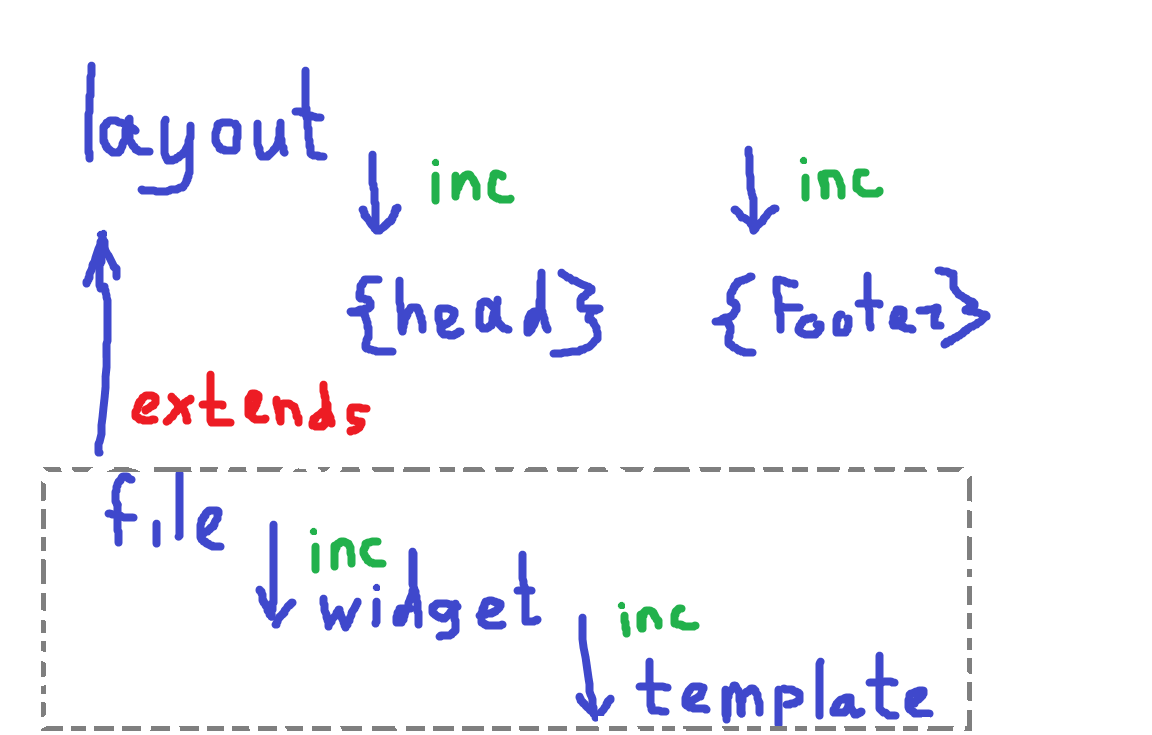 layout
inc inc
{head} {Footer}
extends
file
inc
widget
inc
template